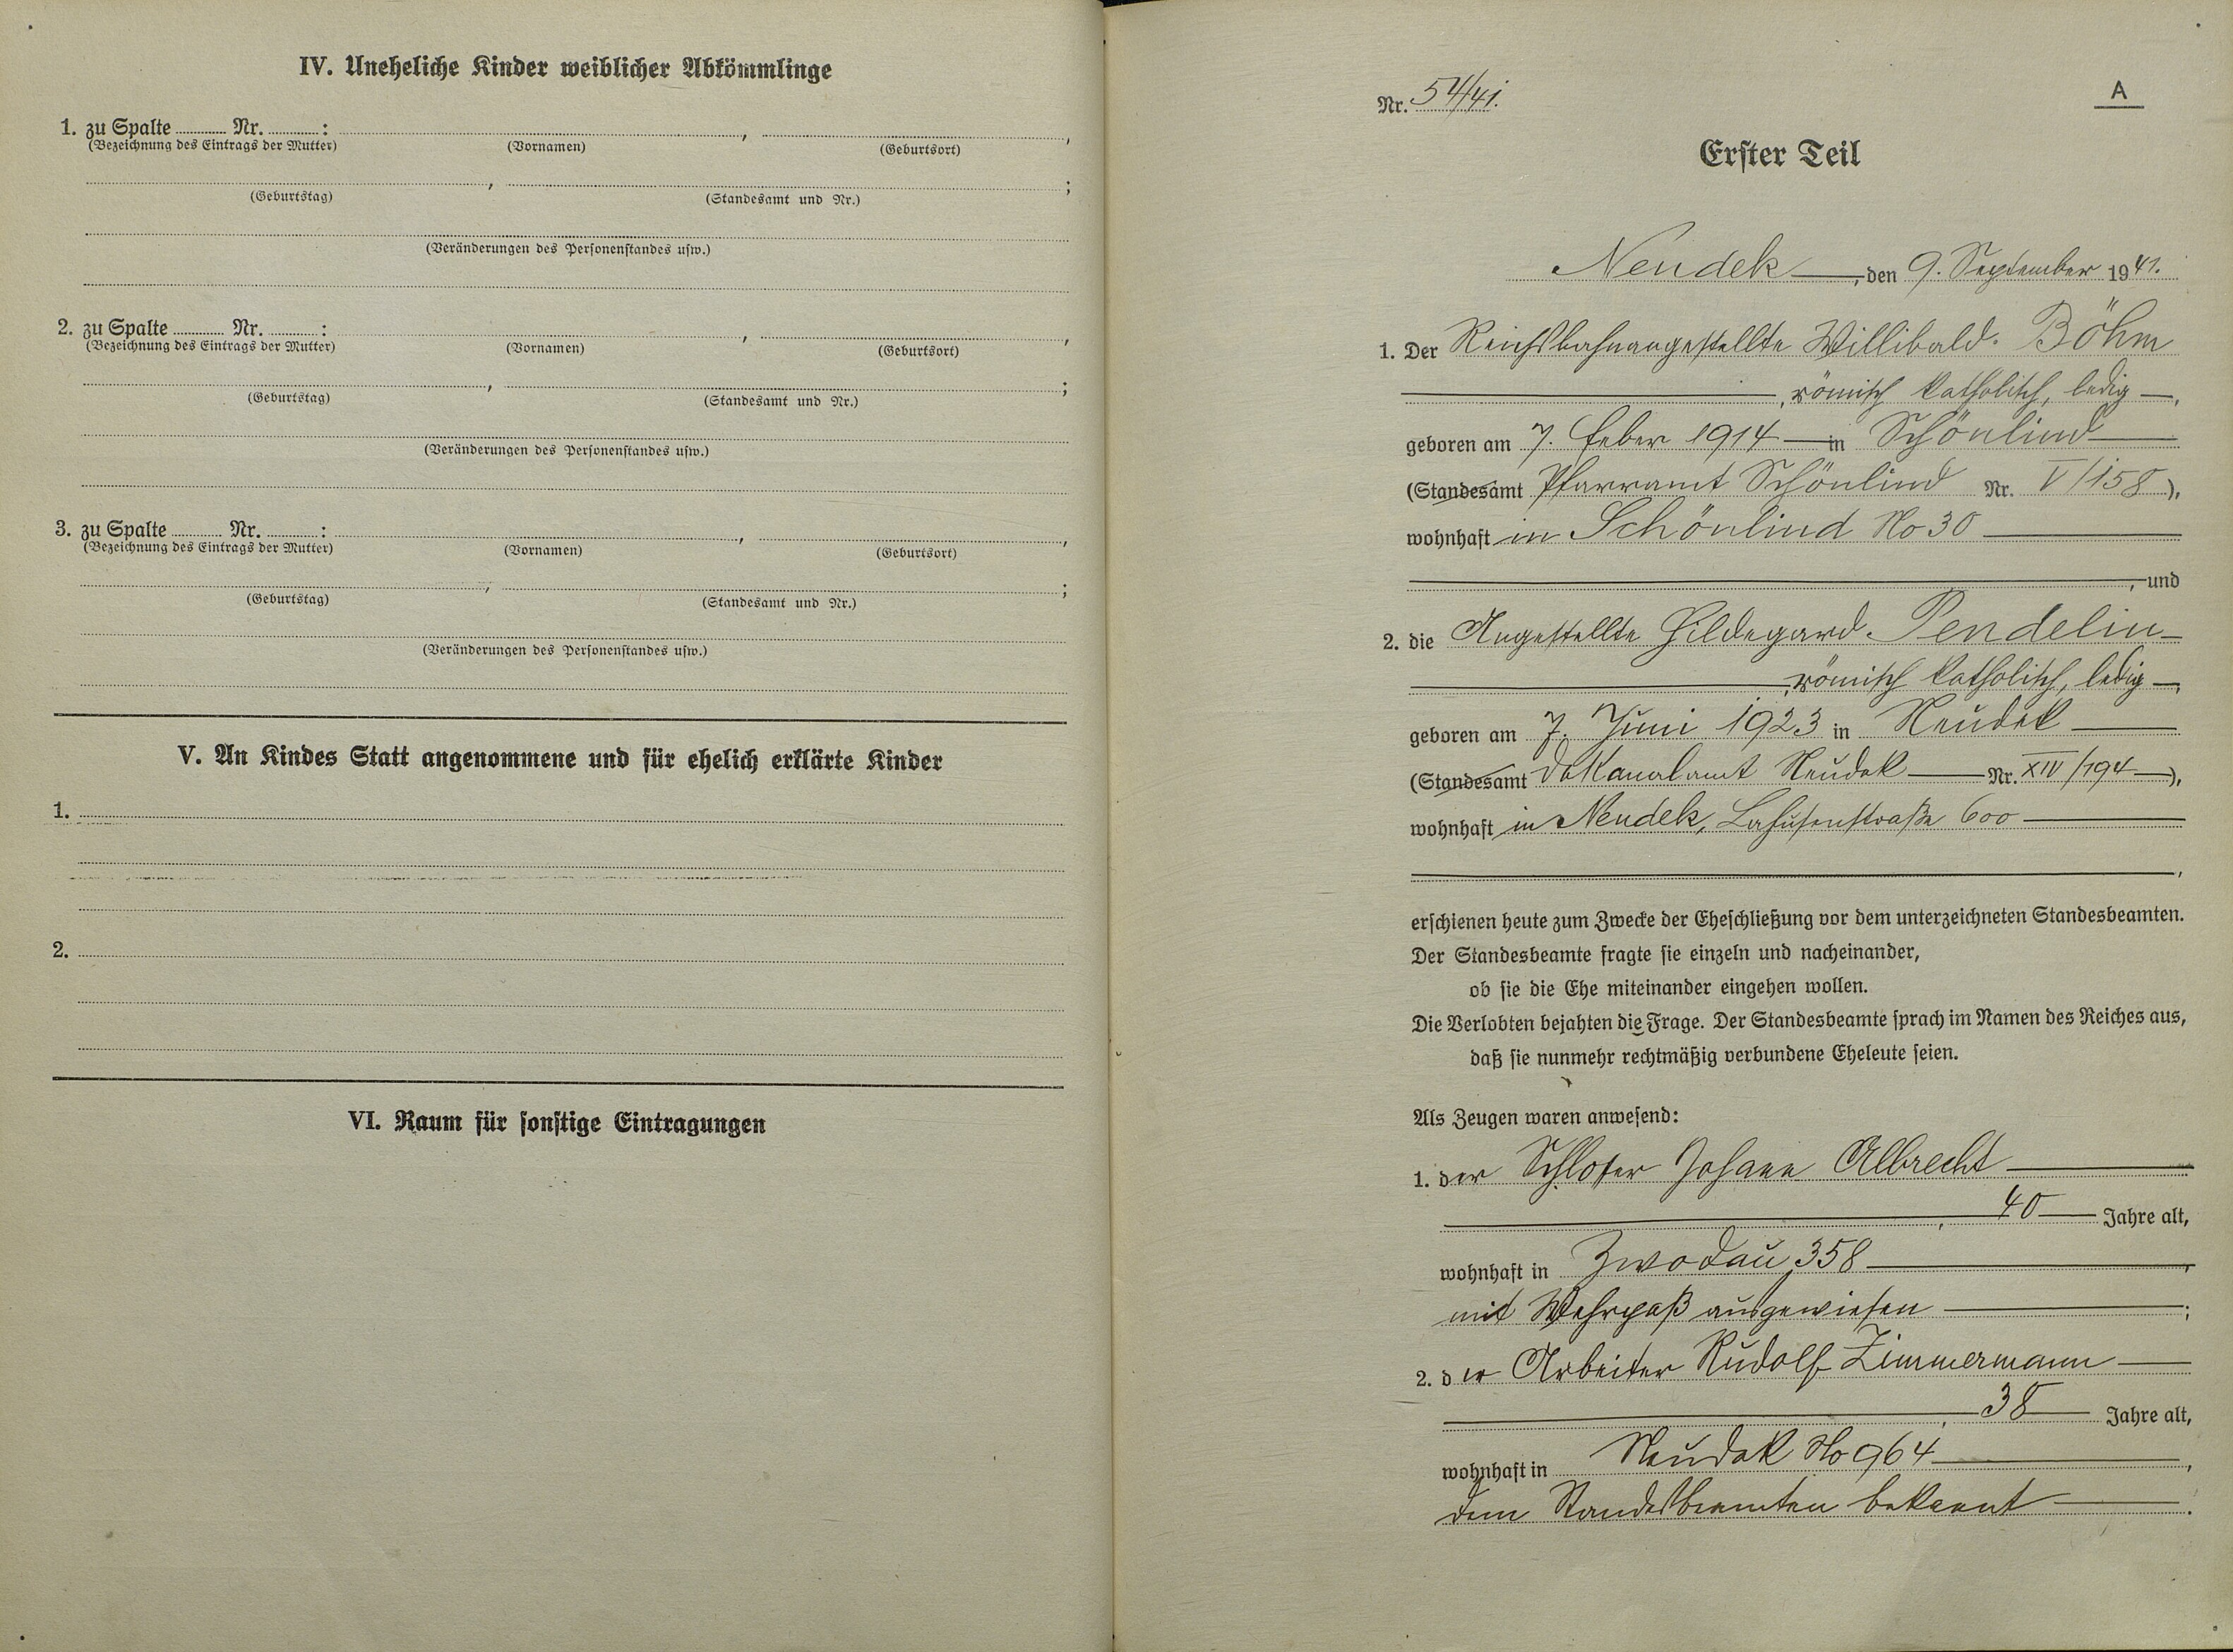 IV. Uneheliche Kinder weiblicher Abkömmlinge
1. zu Spalte ............ Nr. ............ : ............, ............,
(Bezeichnung des Eintrags der Mutter) (Vornamen) (Geburtsort)
............, ............;
(Geburtstag) (Standesamt und Nr.)
(Veränderungen des Personenstandes usw.)
2. zu Spalte ............ Nr. ............ : ............, ............,
(Bezeichnung des Eintrags der Mutter) (Vornamen) (Geburtsort)
............, ............;
(Geburtstag) (Standesamt und Nr.)
(Veränderungen des Personenstandes usw.)
3. zu Spalte ............ Nr. ............ : ............, ............,
(Bezeichnung des Eintrags der Mutter) (Vornamen) (Geburtsort)
............, ............;
(Geburtstag) (Standesamt und Nr.)
(Veränderungen des Personenstandes usw.)
V. An Kindes Statt angenommene und für ehelich erklärte Kinder
1.
2.
VI. Raum für sonstige Eintragungen
Nr. 54/41.
A
Erster Teil
Neudek, den 9. September 1941.
1. Der Reichsbahnangestellte Willibald Böhm
, römisch katholisch, ledig,
geboren am 7. Feber 1914 in Schönlind
(Standesamt Pfarramt Schönlind Nr. V/158),
wohnhaft in Schönlind No 30
, und
2. die Angestellte Hildegard Pendelin
, römisch katholisch, ledig,
geboren am 7. Juni 1923 in Neudek
(Standesamt Dekanalamt Neudek Nr. XIV/194),
wohnhaft in Neudek, Lahusenstraße 600
,
erschienen heute zum Zwecke der Eheschließung vor dem unterzeichneten Standesbeamten.
Der Standesbeamte fragte sie einzeln und nacheinander,
ob sie die Ehe miteinander eingehen wollen.
Die Verlobten bejahten die Frage. Der Standesbeamte sprach im Namen des Reiches aus,
daß sie nunmehr rechtmäßig verbundene Eheleute seien.
Als Zeugen waren anwesend:
1. der Schlosser Johann Albrecht
, 40 Jahre alt,
wohnhaft in Zwodau 358,
mit Wehrpaß ausgewiesen;
2. der Arbeiter Rudolf Zimmermann
, 38 Jahre alt,
wohnhaft in Neudek No 964,
dem Standesbeamten bekannt.